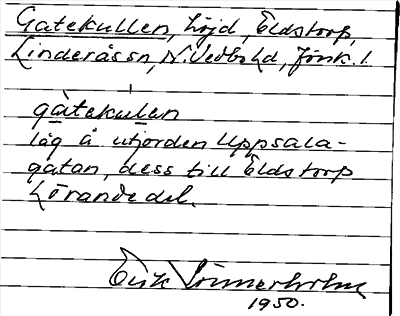 Gatekullen, höjd, Eldstorp,
Linderåssn, N. Vedbo hd, Jönk. l.
gàtekulen
låg å utjorden Uppsala-
gatan, dess till Eldstorp
hörande del.
Erik Sönnerholm
1950.